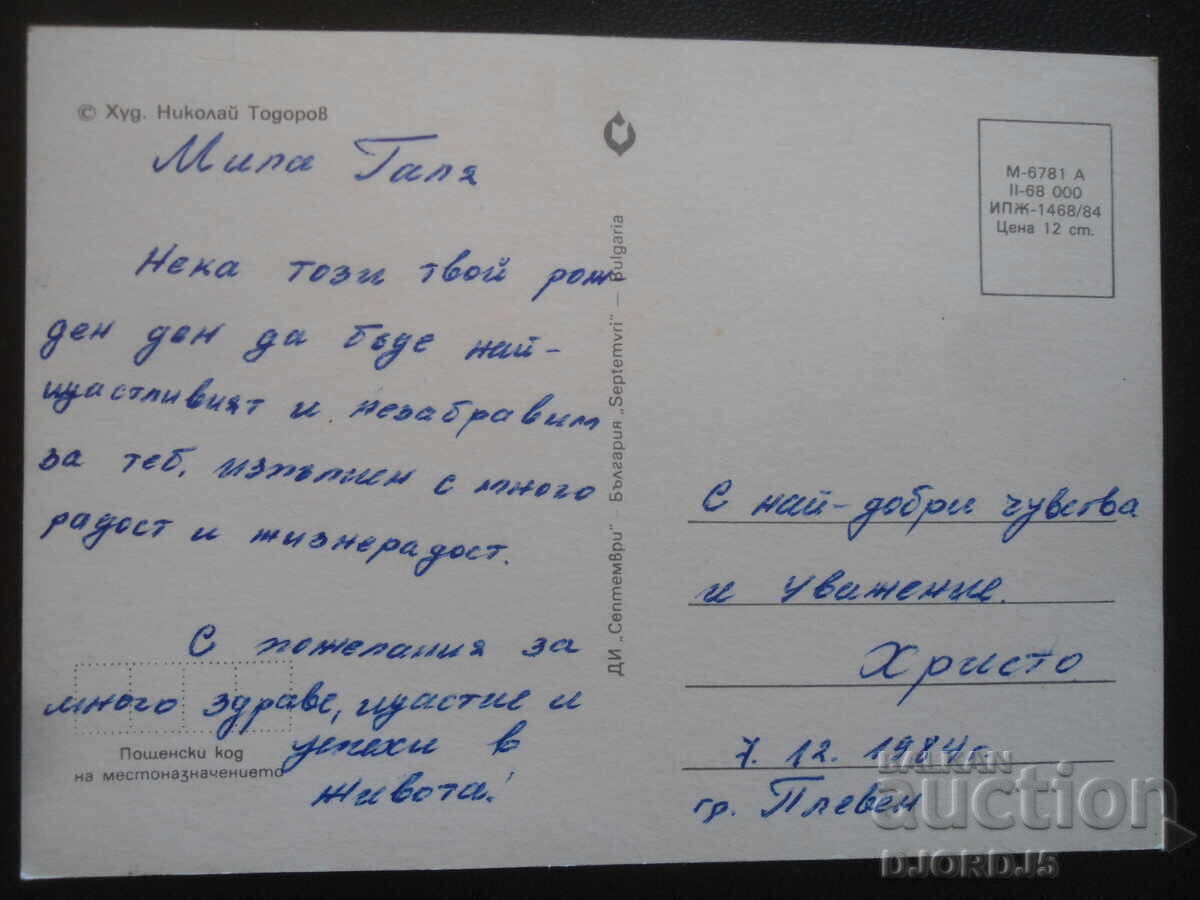 © Худ. Николай Тодоров
Мила Галя
Нека този твой рож
ден ден да бъде най-
щастливият и незабравим
за теб, изпълнен с много
радост и жизнерадост.
С пожелания за
много здраве, щастие и
успехи в
живота!
Пощенски код
на местоназначението
ДИ „Септември" – България „Septemvri" – Bulgaria
М-6781 А
II-68 000
ИПЖ-1468/84
Цена 12 ст.
С най-добри чувства
и уважение.
Христо
7.12.1984г.
гр. Плевен
BALKAN
auction
DJORDJ5